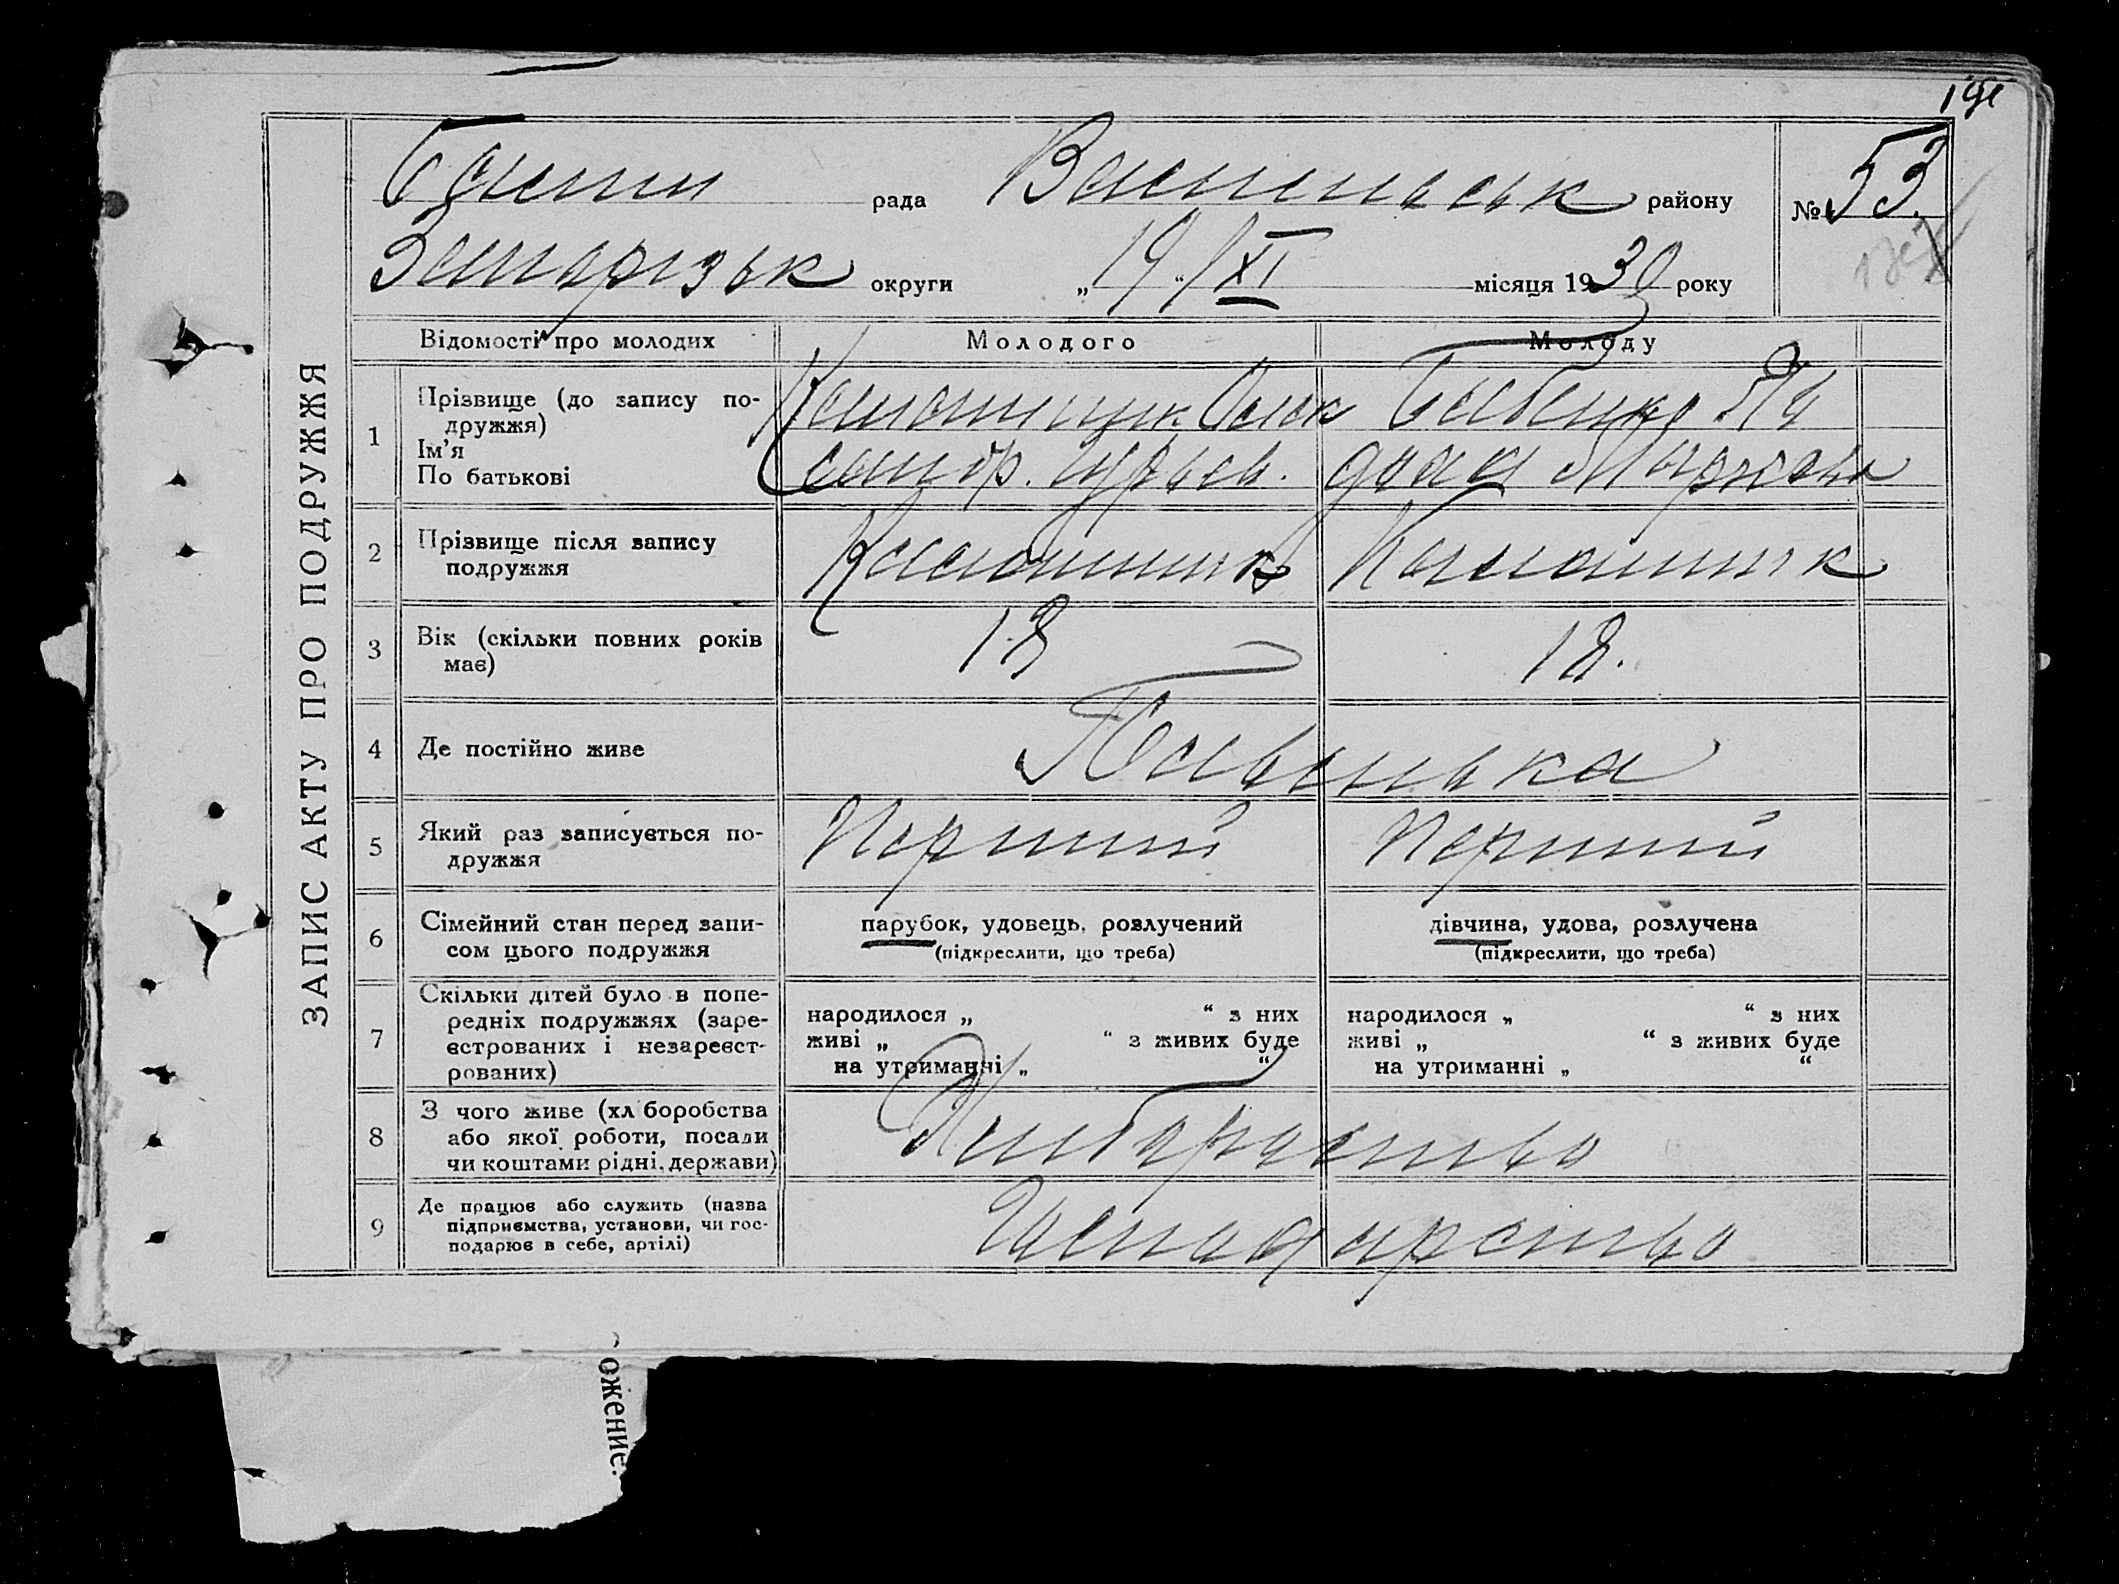 рада Васильвськ району
№ 53.
Запорізьк округи „ 19 “ XI місяця 1930 року
ЗАПИС АКТУ ПРО ПОДРУЖЖЯ
Відомості про молодих
Молодого
Молоду
1
Прізвище (до запису по-
дружжя)
Ім'я
По батькові
Олек
сандр.
Бабенко
2
Прізвище після запису
подружжя
3
Вік (скільки повних років
має)
18
18.
4
Де постійно живе
5
Який раз записується по-
дружжя
Перший
Перший
6
Сімейний стан перед запи-
сом цього подружжя
парубок, удовець, розлучений
(підкреслити, що треба)
дівчина, удова, розлучена
(підкреслити, що треба)
7
Скільки дітей було в попе-
редніх подружжях (заре-
єстрованих і незареєст-
рованих)
народилося „ “ з них
живі „ “ з живих буде
на утриманні „ “
народилося „ “ з них
живі „ “ з живих буде
на утриманні „ “
8
З чого живе (хл боробства
або якої роботи, посади
чи коштами рідні, держави)
9
Де працює або служить (назва
підприємства, установи, чи гос-
подарює в себе, артілі)
Господарство
ожение.